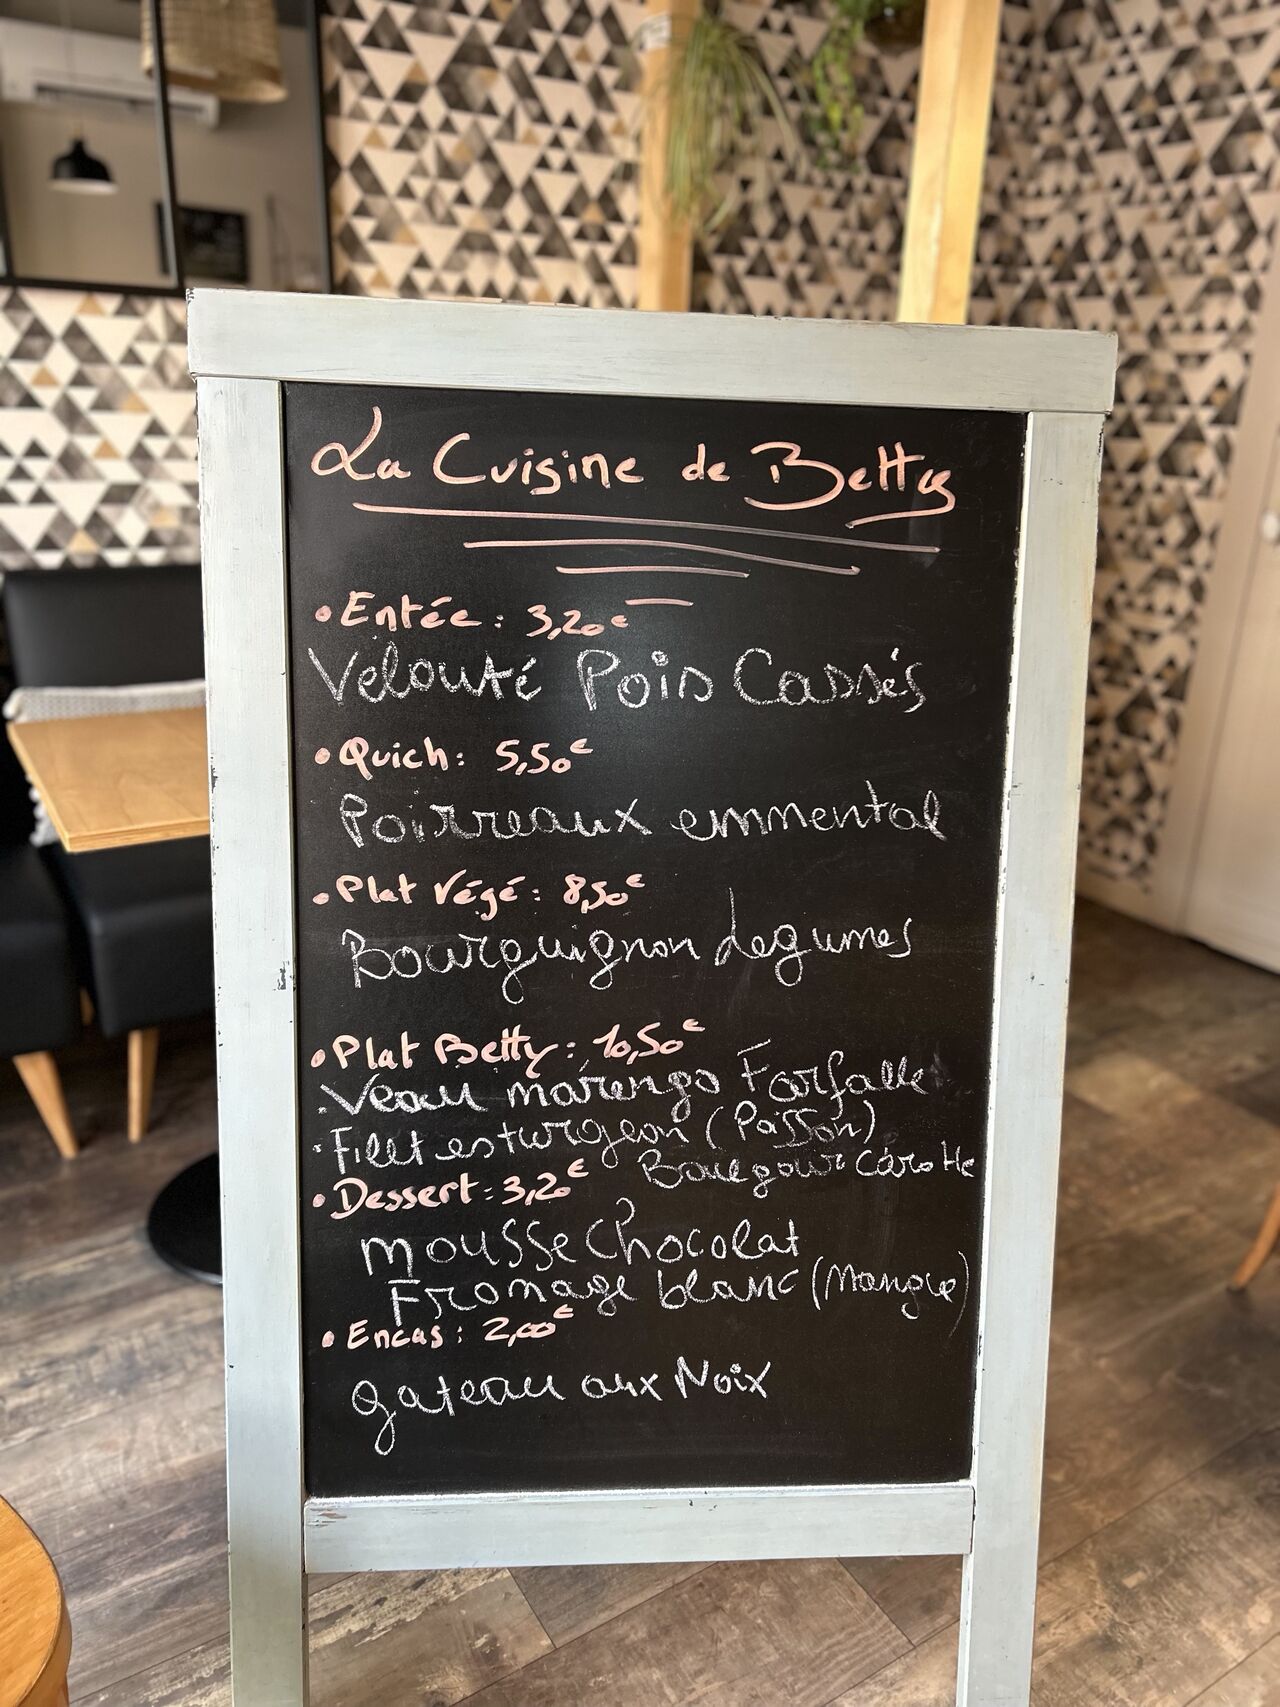 La Cuisine de Betty
• Entée : 3,20€
Velouté Pois Cassés
• Quich : 5,50€
Poirreaux emmental
• Plat Végé : 8,50€
Bourguignon Legumes
• Plat Betty : 10,50€
. Veau marengo Farfalle
. Filet esturgeon (Poisson)
Boulgour carotte
• Dessert : 3,20€
mousse chocolat
Fromage blanc (Mangue)
• Encas : 2,00€
gateau aux Noix